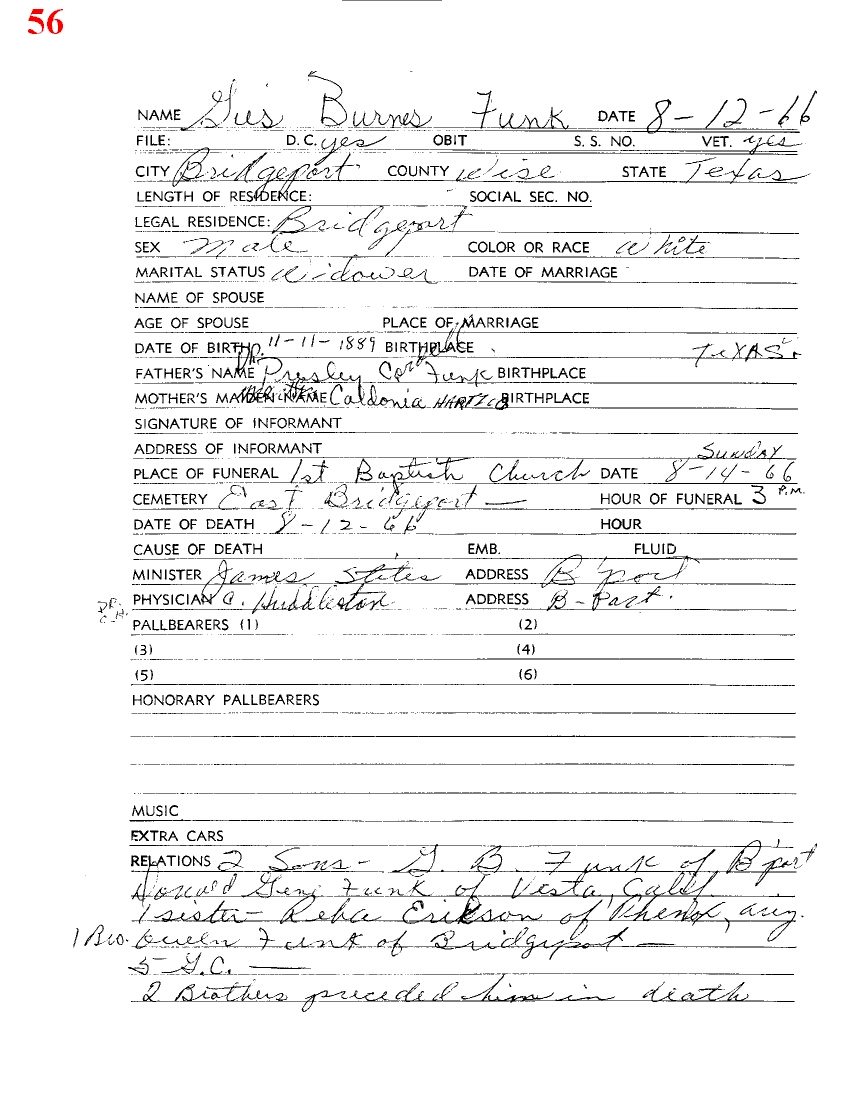 56
NAME Gus Burnes Funk DATE 8-12-66
FILE: D.C. yes OBIT S. S. NO. VET. yes
CITY Bridgeport COUNTY Wise STATE Texas
LENGTH OF RESIDENCE: SOCIAL SEC. NO.
LEGAL RESIDENCE: Bridgeport
SEX Male COLOR OR RACE White
MARITAL STATUS Widower DATE OF MARRIAGE
NAME OF SPOUSE
AGE OF SPOUSE PLACE OF MARRIAGE
DATE OF BIRTH 11-11-1889 BIRTHPLACE TEXAS
FATHER'S NAME Dr. Presley Funk BIRTHPLACE
MOTHER'S MAIDEN NAME Caldonia BIRTHPLACE
SIGNATURE OF INFORMANT
ADDRESS OF INFORMANT
PLACE OF FUNERAL 1st Baptist Church DATE Sunday 8-14-66
CEMETERY East Bridgeport — HOUR OF FUNERAL 3 P.M.
DATE OF DEATH 8-12-66 HOUR
CAUSE OF DEATH EMB. FLUID
MINISTER James Stiles ADDRESS B'port
DR. C.H. PHYSICIAN Huddleston ADDRESS B-Port.
PALLBEARERS (1) (2)
(3) (4)
(5) (6)
HONORARY PALLBEARERS
MUSIC
EXTRA CARS
RELATIONS 2 Sons- G. B. Funk of B'port
Gene Funk of Vesta, Calif
1 sister- Reba Erikson of Phenox, ariz.
1 Bro. Funk of Bridgeport —
5 G.C. —
2 Brothers preceded him in death